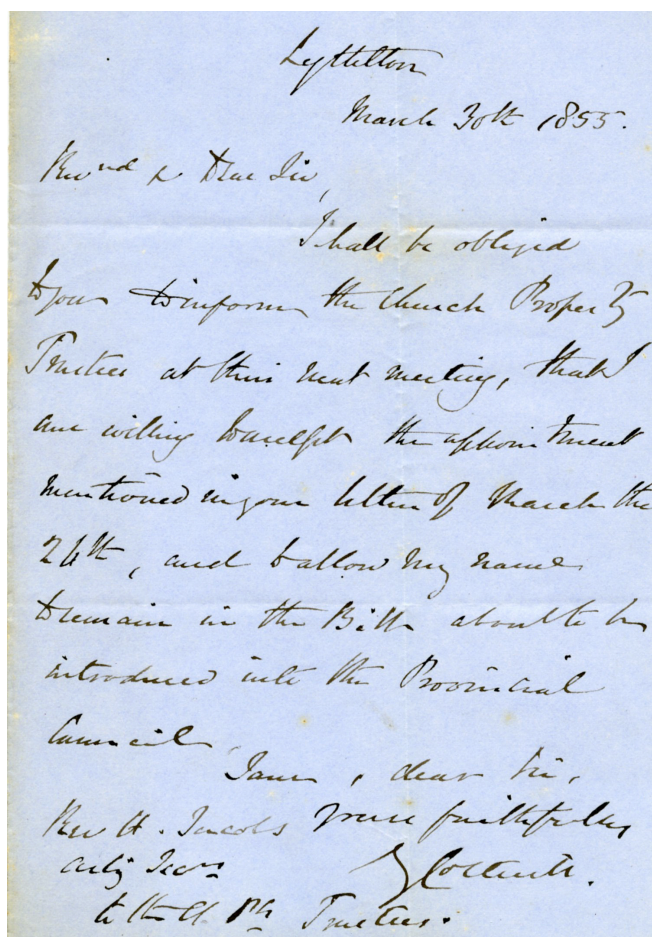 Lyttelton
March 30th 1855.
Revnd & Dear Sir,
I shall be obliged
to you to inform the Church Property
Trustees at their next meeting, that I
am willing to accept the appointment
mentioned in your letter of March the
26th, and to allow my name
to remain in the Bill about to be
introduced into the Provincial
Council.
I am, dear Sir,
Rev H. Jacobs yours faithfully
actg Secy
to the Ch Pty Trustees.